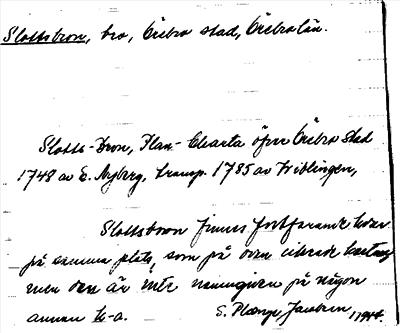 Slottsbron, bro, Örebro stad, Örebro län.
Slotts-Bron, Plan-Charta öfver Örebro Stad
1748 av E. Nyberg, transp. 1785 av Wiblingen,
Slottsbron finnes fortfarande kvar
på samma plats, som på ovan citerade karta,
men den är inte namngiven på någon
annan k-a. S. Jansson, 1944.